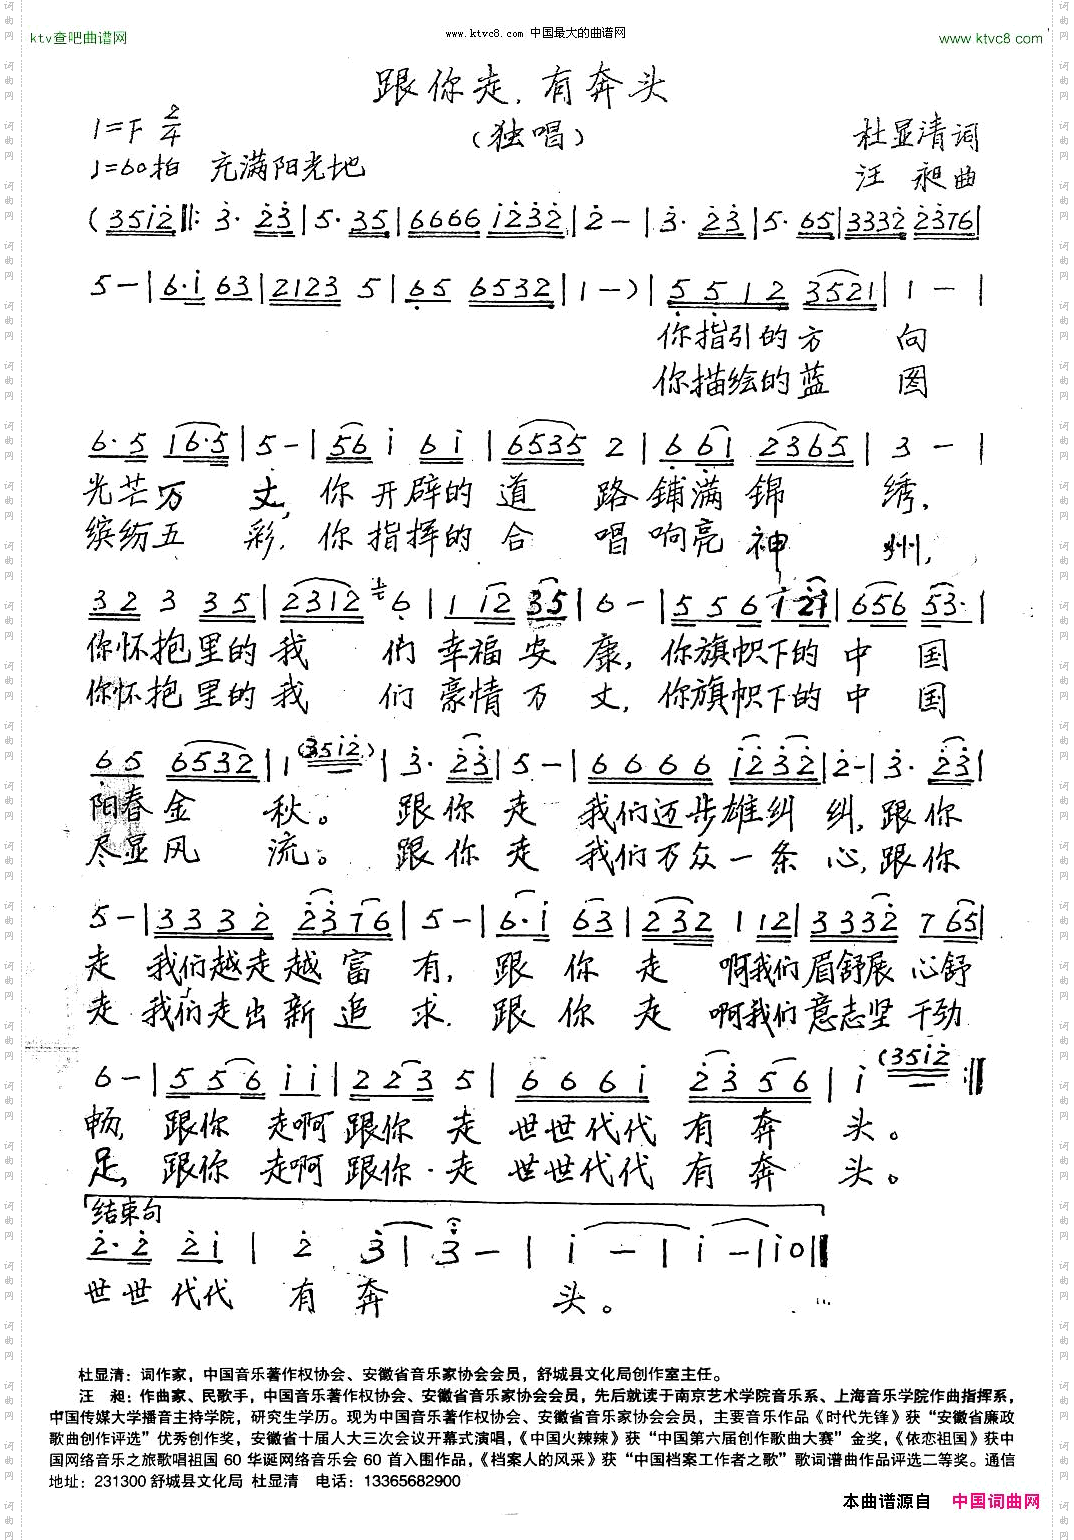 ktv查吧曲谱网
www.ktvc8.com 中国最大的曲谱网
www.ktvc8.com
跟你走,有奔头
(独唱)
1=F 2/4
♩=60拍 充满阳光地
杜显清词
汪 昶曲
(35i̇2̇‖: 3̇· 2̇3̇|5· 35|6666 i̇2̇3̇2̇|2̇ —|3̇· 2̇3̇|5· 65|3332̇ 2̇376|
5 —|6·i̇ 63|2123 5|6̣5 6532|1 —)|5̣ 5̣ 1 2 3521|1 — |
你指引的方 向
你描绘的蓝 图
6· 5 16·5|5 —|56 i̇ 6i̇|6535 2|6̣ 6̣1 2365|3 — |
光芒万 丈,你开辟的道 路鋪满錦 绣,
缤纷五 彩,你指挥的合 唱响亮神 州,
32 3 35|2312 6̣|1 i̇2 35|6 —|5 5 6 i̇ 2̇i̇|656 53·|
你怀抱里的我 们幸福安 康,你旗帜下的中 国
你怀抱里的我 们豪情万 丈,你旗帜下的中 国
6̣5 6532|1 (35i̇2̇)|3̇· 2̇3̇|5 —|6 6 6 6 i̇2̇3̇2̇|2̇ —|3̇· 2̇3̇|
阳春金 秋。 跟你走 我们迈步雄纠纠,跟你
尽显风 流。 跟你走 我们万众一条心,跟你
5 —|3 3 3 2̇ 2̇3̇76|5 —|6·i̇ 63|232 1 12|3332̇ 7 65|
走 我们越走越富有, 跟你走 啊我们眉舒展心舒
走 我们走出新追求. 跟你走 啊我们意志坚干劲
6 —|5 5 6 i̇ i̇|2 2 3 5|6 6 6 i̇ 2̇·3̇ 5 6|i̇ (35i̇2̇ :‖
畅, 跟你走啊跟你走 世世代代有奔头。
足, 跟你走啊跟你·走 世世代代有奔头。
结束句
2̇· 2̇ 2̇i̇| 2̇ 3̇|3̇ —|i̇ —|i̇ —|i̇0‖
世世代代 有奔 头。
杜显清:词作家,中国音乐著作权协会、安徽省音乐家协会会员,舒城县文化局创作室主任。
汪 昶:作曲家、民歌手,中国音乐著作权协会、安徽省音乐家协会会员,先后就读于南京艺术学院音乐系、上海音乐学院作曲指挥系,
中国传媒大学播音主持学院,研究生学历。现为中国音乐著作权协会、安徽省音乐家协会会员,主要音乐作品《时代先锋》获“安徽省廉政
歌曲创作评选”优秀创作奖,安徽省十届人大三次会议开幕式演唱,《中国火辣辣》获“中国第六届创作歌曲大赛”金奖,《依恋祖国》获中
国网络音乐之旅歌唱祖国 60 华诞网络音乐会 60 首入围作品,《档案人的风采》获“中国档案工作者之歌”歌词谱曲作品评选二等奖。通信
地址:231300 舒城县文化局 杜显清 电话:13365682900
本曲谱源自 中国词曲网